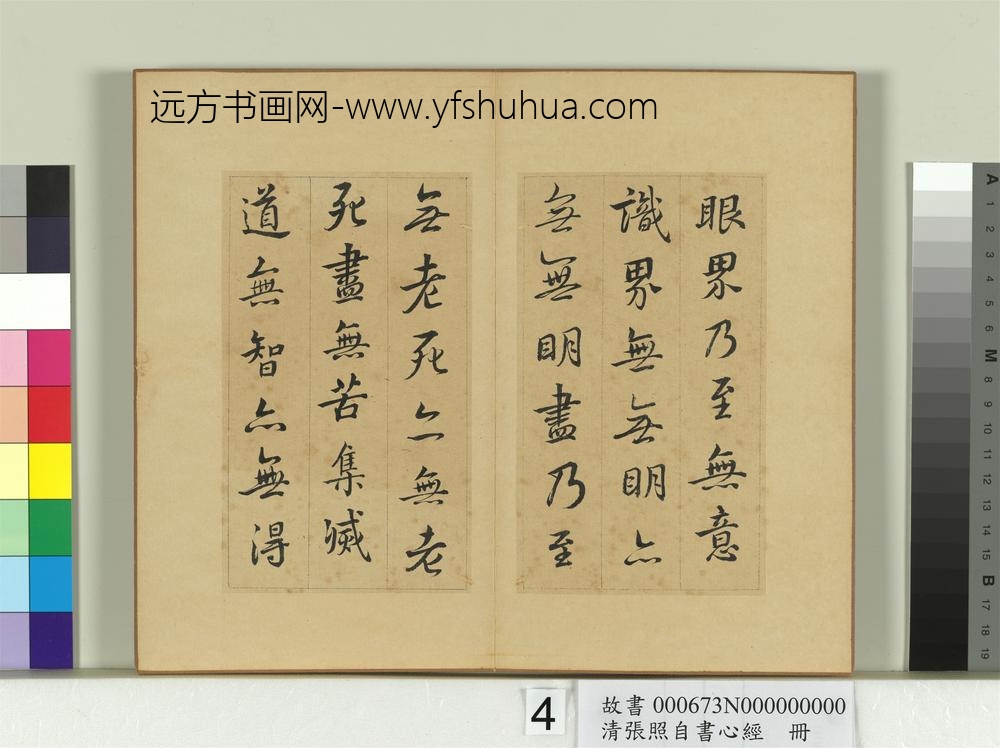 远方书画网-www.yfshuhua.com
眼界乃至無意
識界無无明亦
無無明盡乃至
无老死亦無老
死盡無苦集滅
道無智亦無得
4
故書 000673N000000000
清張照自書心經 冊
A
1
2
3
4
5
6
M
8
9
10
11
12
13
14
15
B
17
18
19